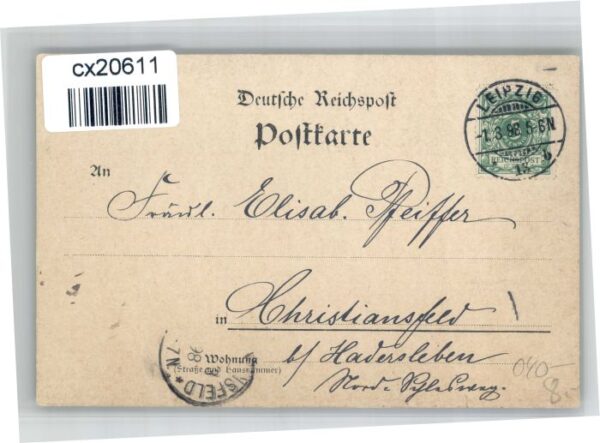 cx20611
Deutsche Reichspost
Postkarte
LEIPZIG
-1.3.98.5-6N
13 b
REICHSPOST
An
Fräul. Elisab. Pfeiffer
in Christiansfeld
b/ Hadersleben
Nord-Schleswig.
Wohnung
(Straße und Hausnummer)
NSFELD
98
7N.
8.-